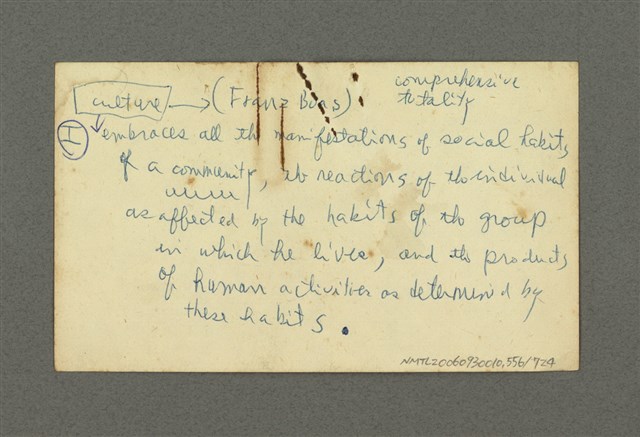 culture → (Franz Boas) comprehensive
totality
I embraces all the manifestations of social habits
of a community, the reactions of the individual
as affected by the habits of the group
in which he lives, and the products
of human activities as determined by
these habits.
NMTL20060930010,556/724